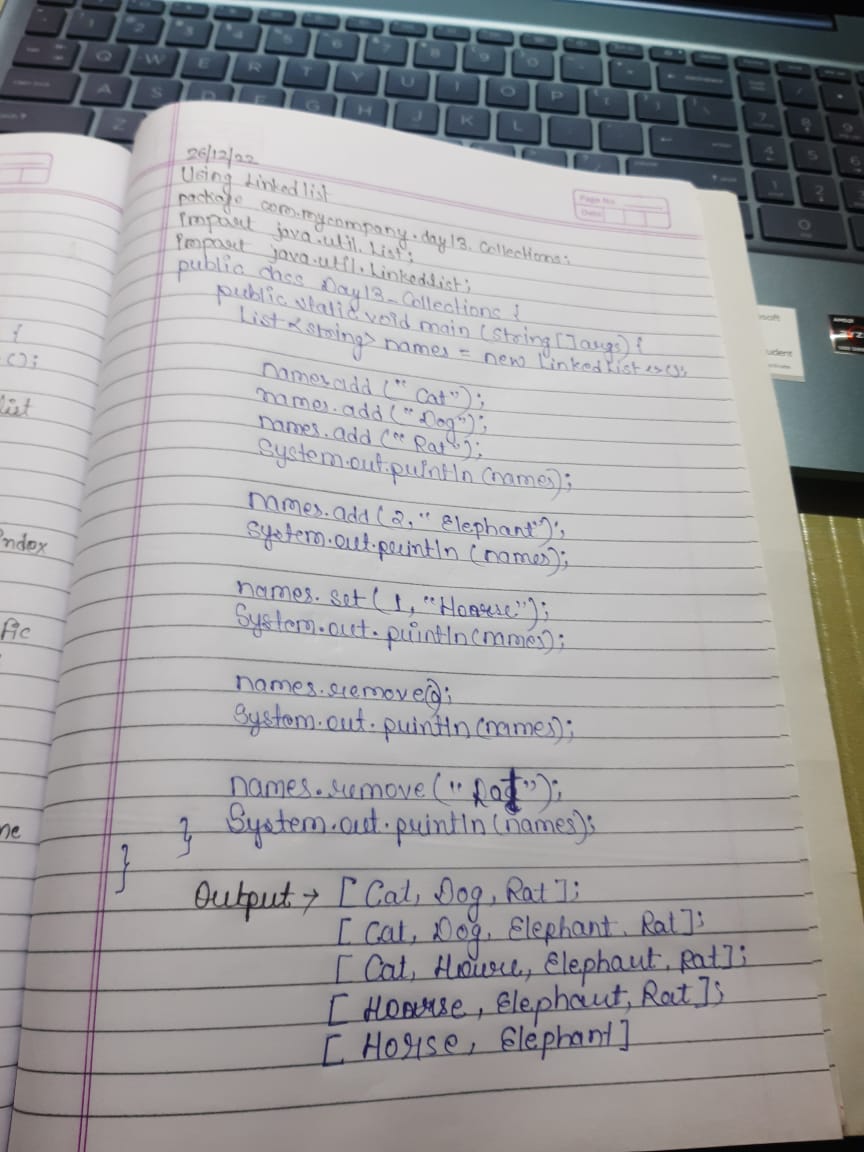 26/12/22
Using Linkedlist
package com.mycompany.day13.Collections;
Import java.util.List;
Import java.util.LinkedList;
public class Day13_Collections {
public static void main (String[]args) {
List <String> names = new LinkedList <>();
names.add (" Cat");
names.add ("Dog");
names.add (" Rat");
System.out.println (names);
names.add (2, " Elephant");
System.out.println (names);
names.set (1, "Hourse");
System.out.println(names);
names.remove(0);
System.out.println(names);
names.remove (" Rat");
} System.out.println (names);
}
Output → [ Cat, Dog, Rat ];
[ Cat, Dog, Elephant, Rat];
[ Cat, Hourse, Elephant, Rat];
[ Hourse, Elephant, Rat];
[ Horse, Elephant]
Page No.
Date
{
();
list
index
fic
Q W E R T Y U I O P
A S D F G H J K L
Z
AMD